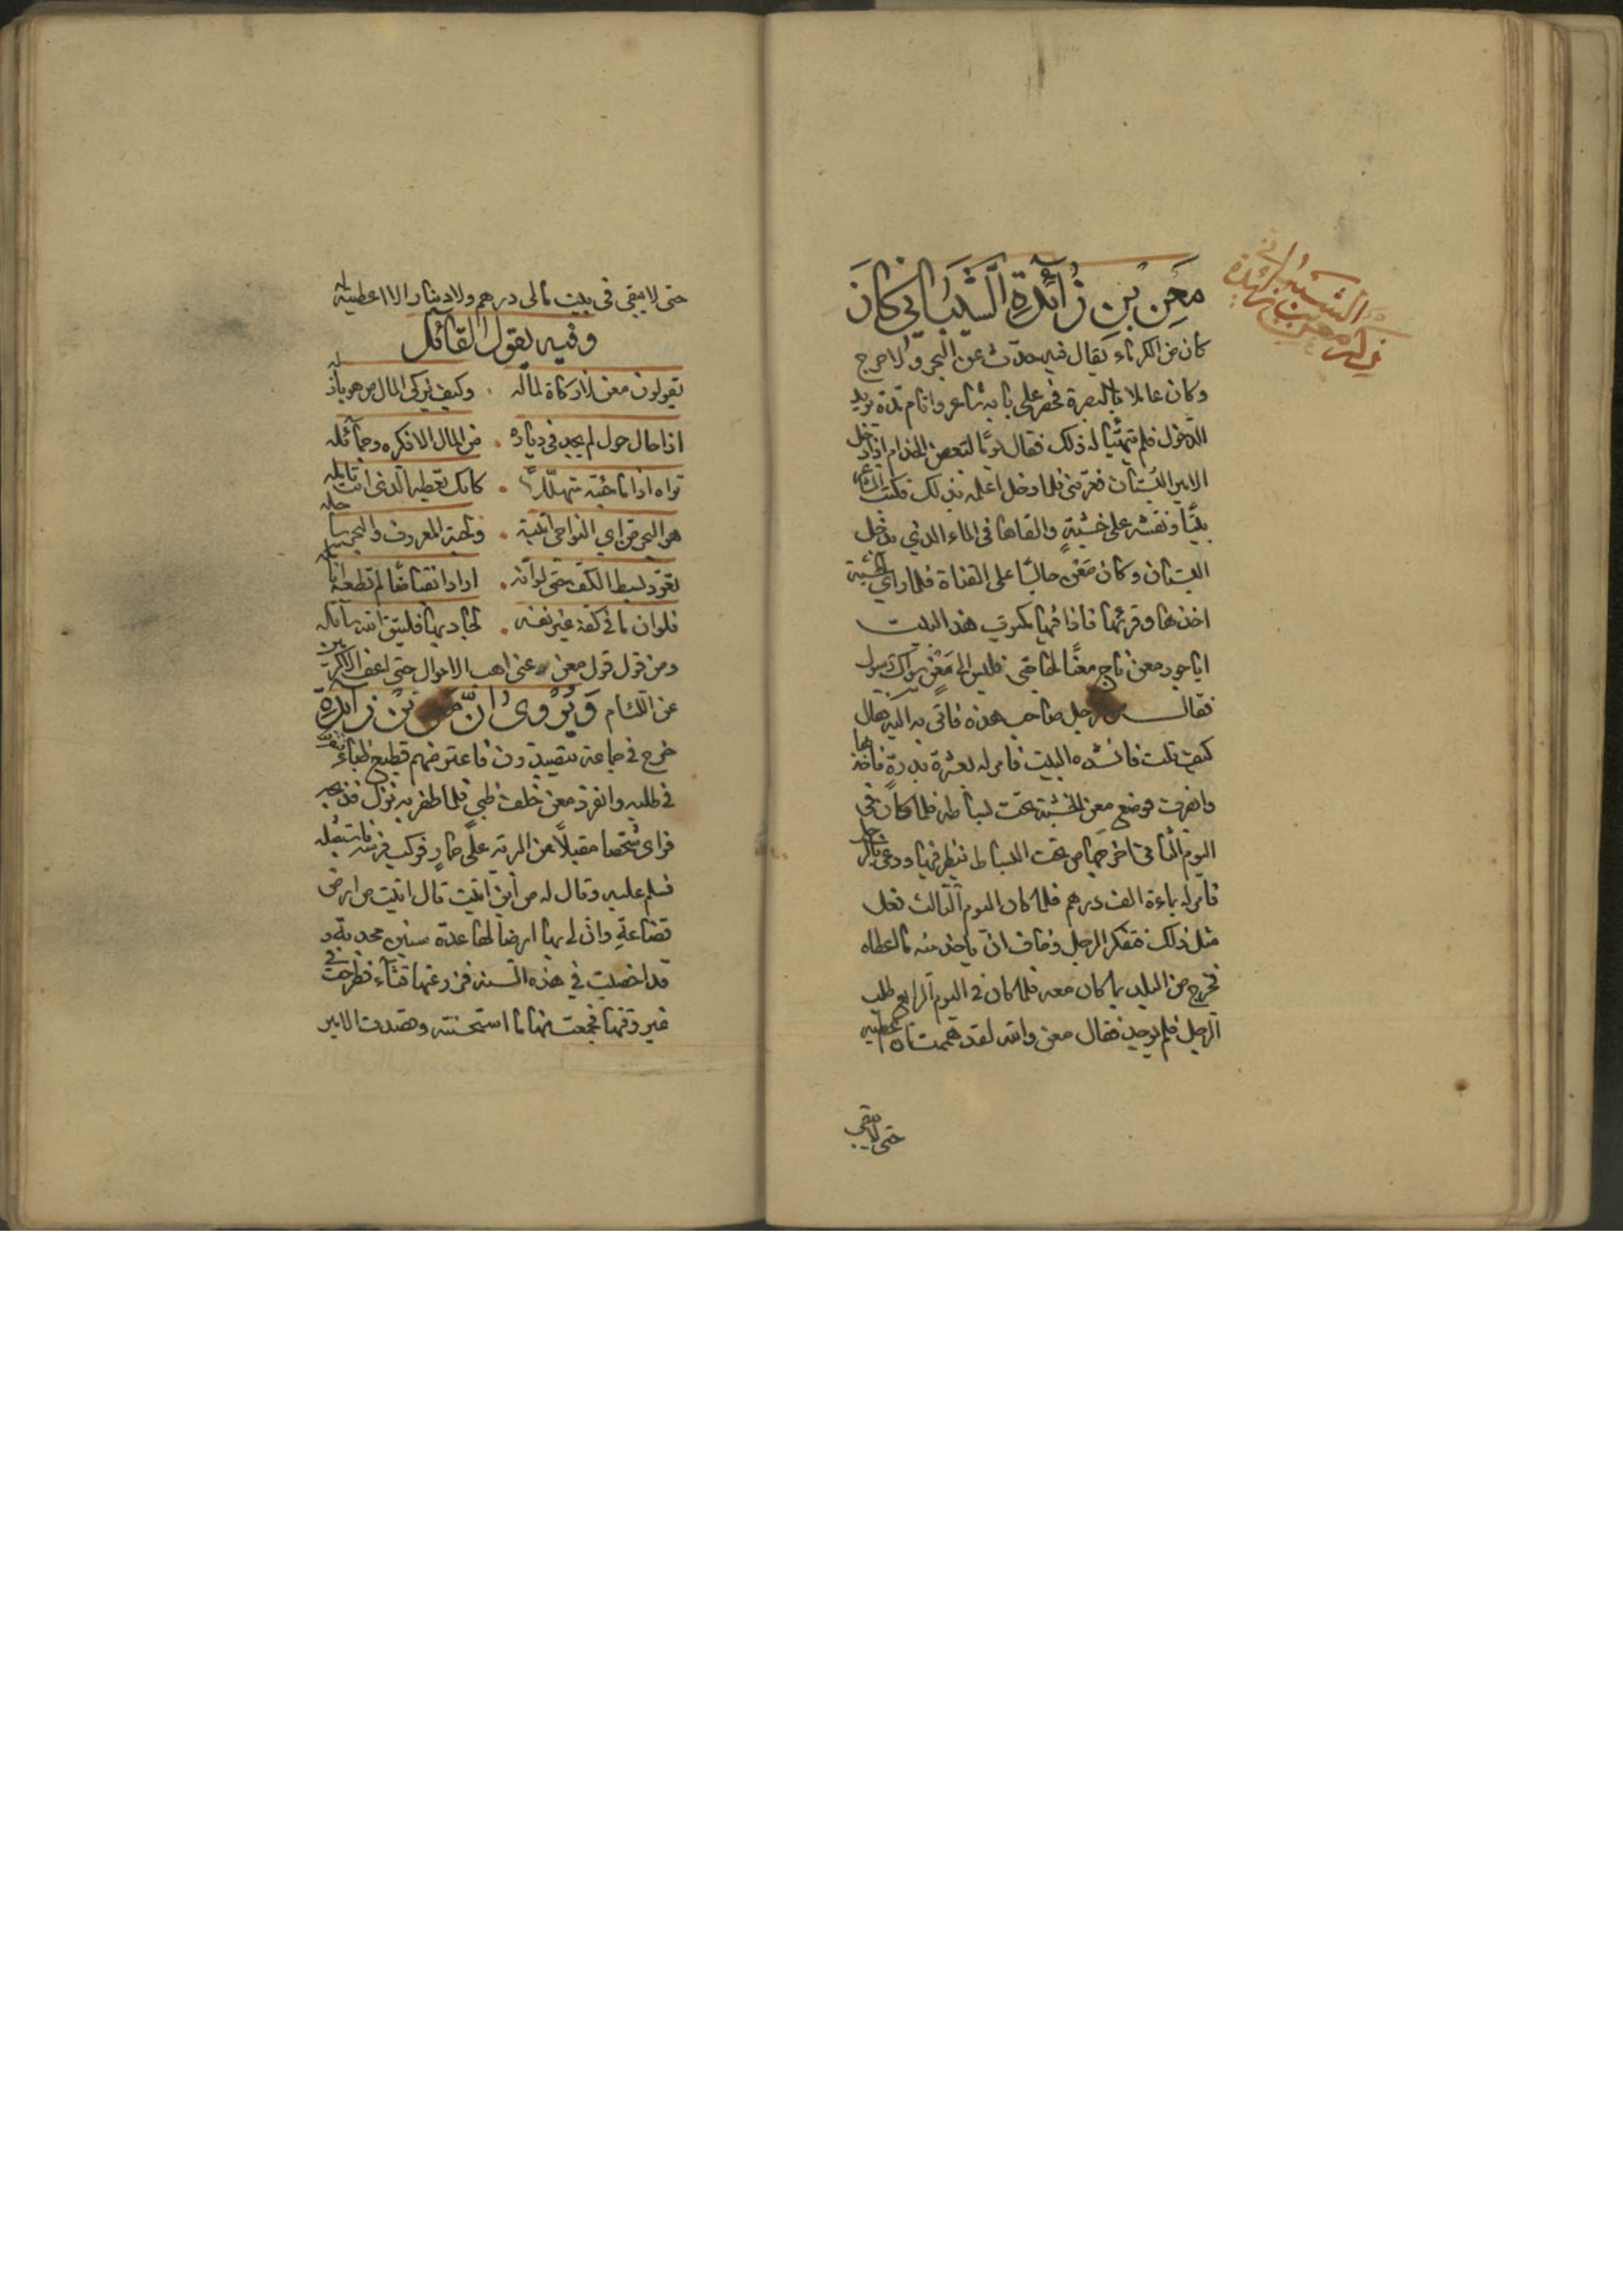 في ذكر معن بن زائدة الشيباني
معن بن زائدة الشيباني كان
كان من الكرماء يقال فيه حدث عن البحر ولا حرج
وكان عاملا بالبصرة فحضر على بابه شاعر واقام مدة يريد
الدخول فلم يتهيّا له ذلك فقال يومًا لبعض الخدام اذا دخل
الامير البستان فعرفني فلما دخل اعلمه بذلك فكتب الشاعر
بيتًا ونقشه على خشبةٍ والقاها في الماء الذي يدخل
البستان وكان معن جالسًا على القناة فلما راى الخشبة
اخذها وقرئها فاذا فيها مكتوب هذا البيت
ايا جود معن ناج معنًا بحاجتي فليس الى معن سواك رسول
فقال من الرجل صاحب هذه فاتى به اليه فقال
كيف قلت فانشده البيت فامر له بعشرة بدرة فاخذها
وانصرف فوضع معن الخشبة تحت بساطه فلما كان في
اليوم الثاني اخرجها من تحت البساط ينظر فيها ودعى بالرجل
فامر له بماءة الف درهم فلما كان اليوم الثالث فعل
مثل ذلك فتفكر الرجل وخاف ان ياخذ منه ما اعطاه
فخرج من البلد بما كان معه فلما كان في اليوم الرابع طلب
الرجل فلم يوجد فقال معن والله لقد هممت ان اعطيه
حتى لا يبقى
حتى لا يبقى في بيت مالي درهم ولا دينار الا اعطيته له
وفيه يقول القائل
يقولون معن لا زكاة لماله . وكيف يزكي المال من هو باذله
اذا حال حول لم يجد في دياره . من المال الا ذكره وجمائله
تراه اذا ما جئته متهللًا . كانك تعطيه الذي انت نايله
هو البحر من اي النواحي اتيته . ولجته المعروف والبحر ساحله
تعود بسط الكف حتى لو انه . اراد انقباضًا لم تطعه انامله
فلو ان ما في كفه غير نفسه . لجاد بها فليتق الله سائله
ومن قول قول معن دعني اهب الاموال حتى اعف الاكرمين
عن اللئام ويروى ان معن بن زائدة
خرج في جماعة يتصيدون فاعترضهم قطيع ظباء فتفرقوا
في طلبه وانفرد معن خلف ظبي فلما ظفر به نزل فذبحه
فراى شخصا مقبلًا من البرية على حمارٍ فركب فرسه فاستقبله
فسلم عليه وقال له من أين اتيت قال اتيت من ارض
قضاعةٍ وان لي بها ارضا لها عدة سنين مجدبة و
قد اخصبت في هذه السنة فزرعتها قثاء فطرحت في
غير وقتها فجمعت منها ما استحسنته وقصدت الامير